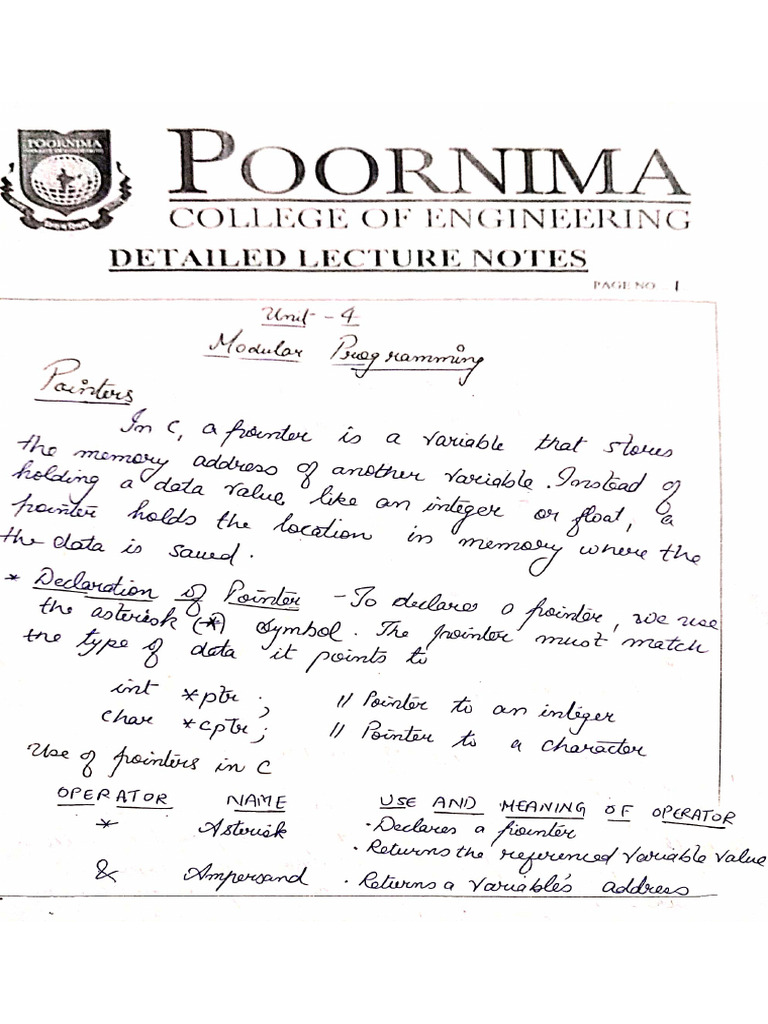 POORNIMA
POORNIMA
COLLEGE OF ENGINEERING
DETAILED LECTURE NOTES
PAGE NO. - 1
Unit - 4
Modular Programming
Pointers
In C, a pointer is a variable that stores
the memory address of another variable. Instead of
holding a data value like an integer or float, a
pointer holds the location in memory where the
the data is saved.
* Declaration of Pointer - To declares a pointer, we use
the asterisk (*) symbol. The pointer must match
the type of data it points to
int *ptr ; // Pointer to an integer
char *cptr ; // Pointer to a character
Use of pointers in C
OPERATOR NAME USE AND MEANING OF OPERATOR
* Asterisk · Declares a pointer
· Returns the referenced variable value
& Ampersand · Returns a variable's address